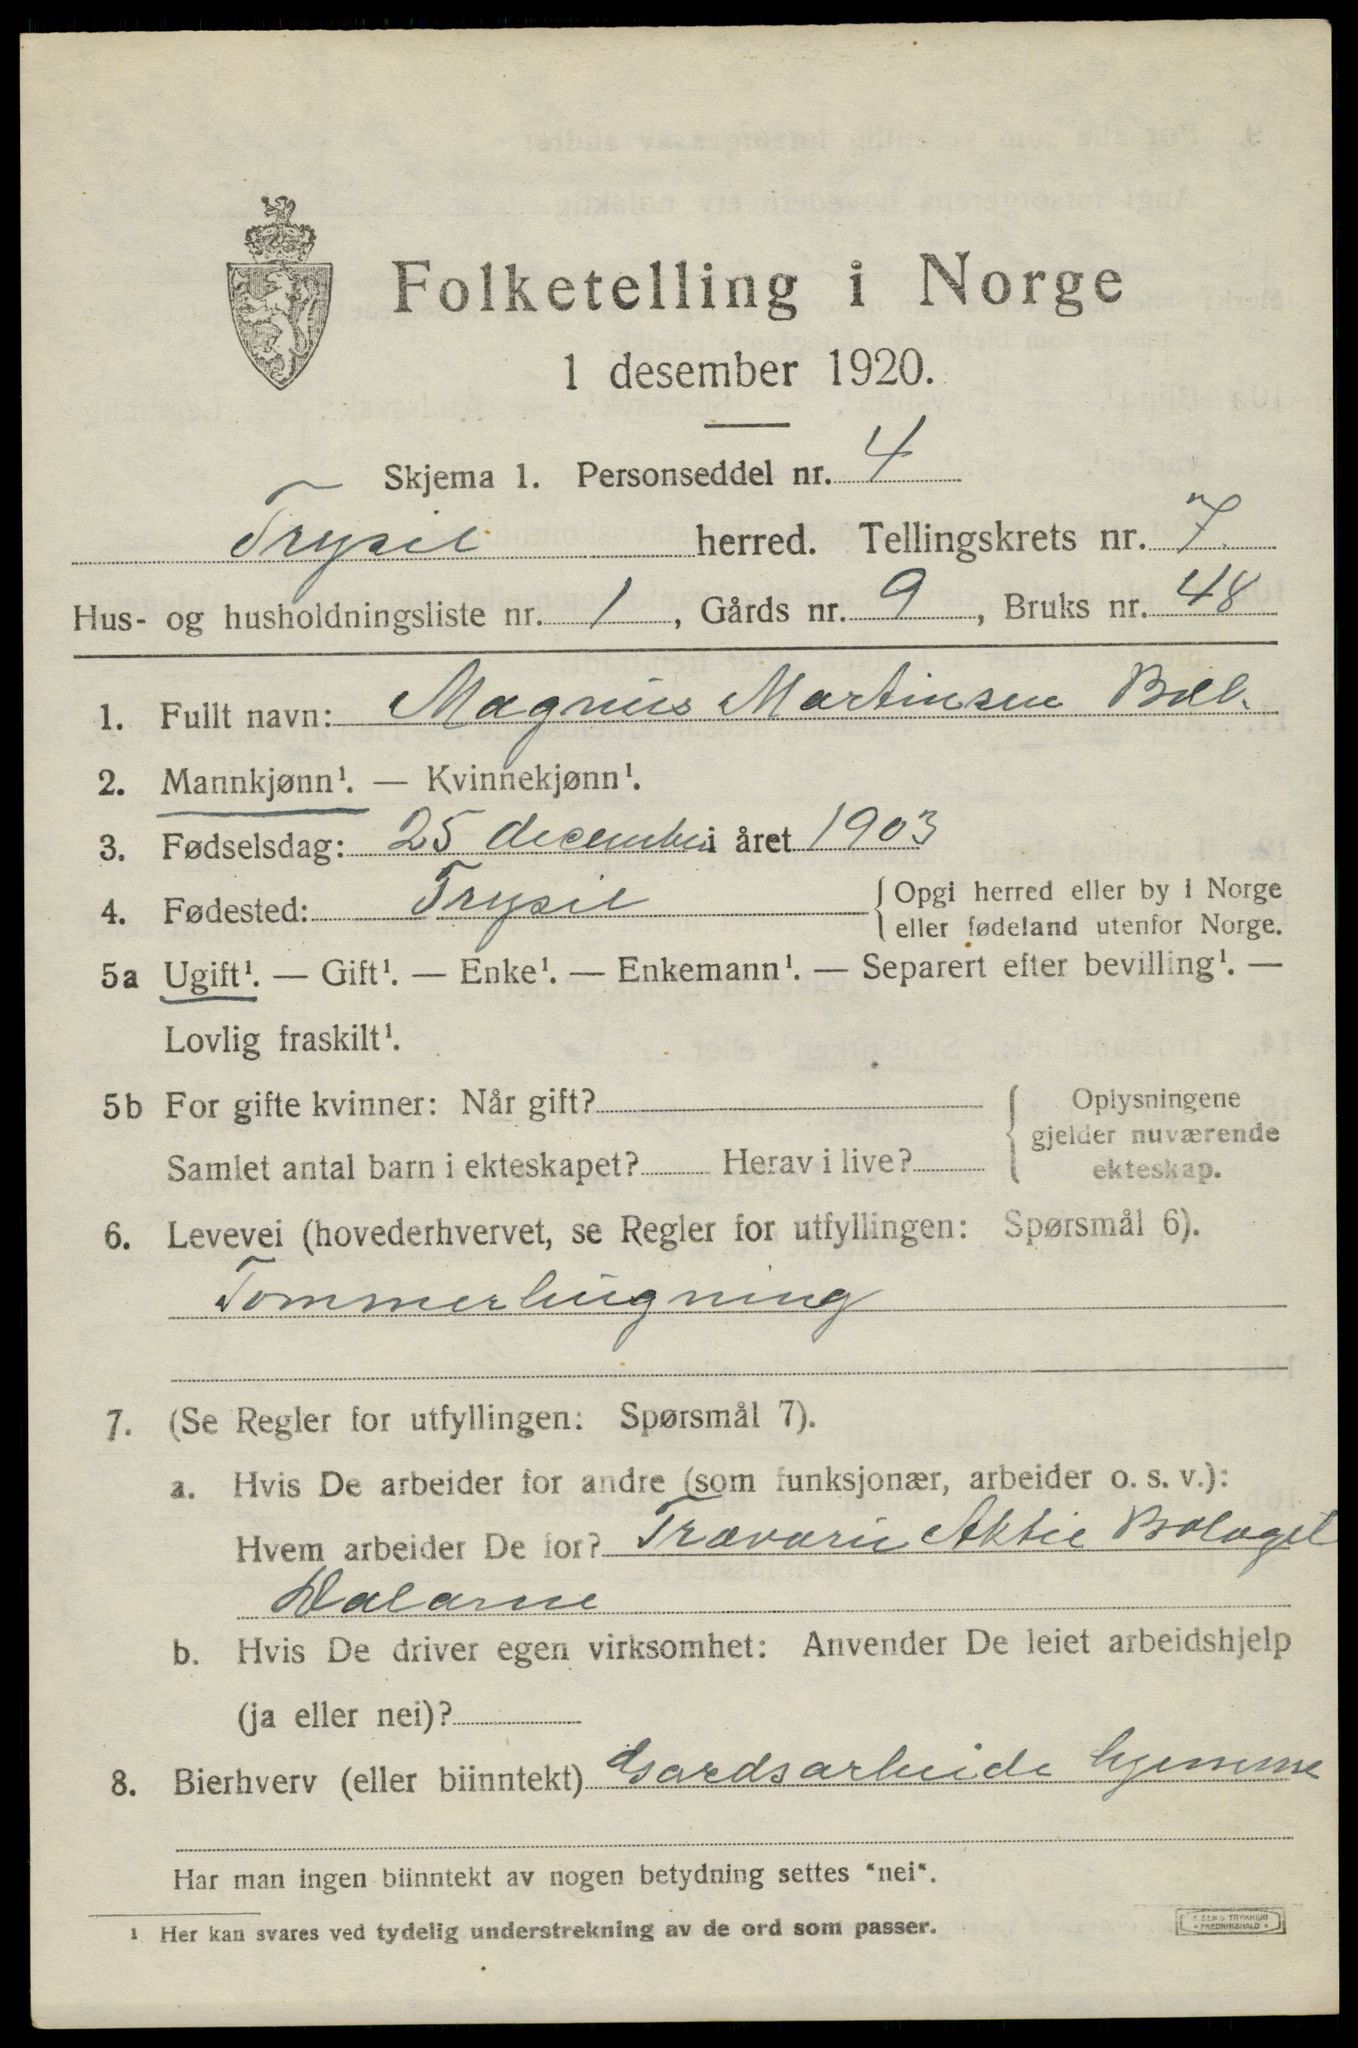 Folketelling i Norge
1 desember 1920.
Skjema 1. Personseddel nr. 4
Trysil herred. Tellingskrets nr. 7.
Hus- og husholdningsliste nr. 1, Gårds nr. 9, Bruks nr. 48
1. Fullt navn: Magnus Martinsen
2. Mannkjønn¹. — Kvinnekjønn¹.
3. Fødselsdag: 25 december i året 1903
4. Fødested: Trysil { Opgi herred eller by i Norge
eller fødeland utenfor Norge.
5a Ugift¹. — Gift¹. — Enke¹. — Enkemann¹. — Separert efter bevilling¹. —
Lovlig fraskilt¹.
5b For gifte kvinner: Når gift? { Oplysningene
gjelder nuværende
Samlet antal barn i ekteskapet? Herav i live? ekteskap.
6. Levevei (hovederhvervet, se Regler for utfyllingen: Spørsmål 6).
Tommerhugning
7. (Se Regler for utfyllingen: Spørsmål 7).
a. Hvis De arbeider for andre (som funksjonær, arbeider o. s. v.):
Hvem arbeider De for? Trævaru Aktie Bolaget
Dalarne
b. Hvis De driver egen virksomhet: Anvender De leiet arbeidshjelp
(ja eller nei)?
8. Bierhverv (eller biinntekt) Gardsarbeide hjemme
Har man ingen biinntekt av nogen betydning settes "nei".
¹ Her kan svares ved tydelig understrekning av de ord som passer.